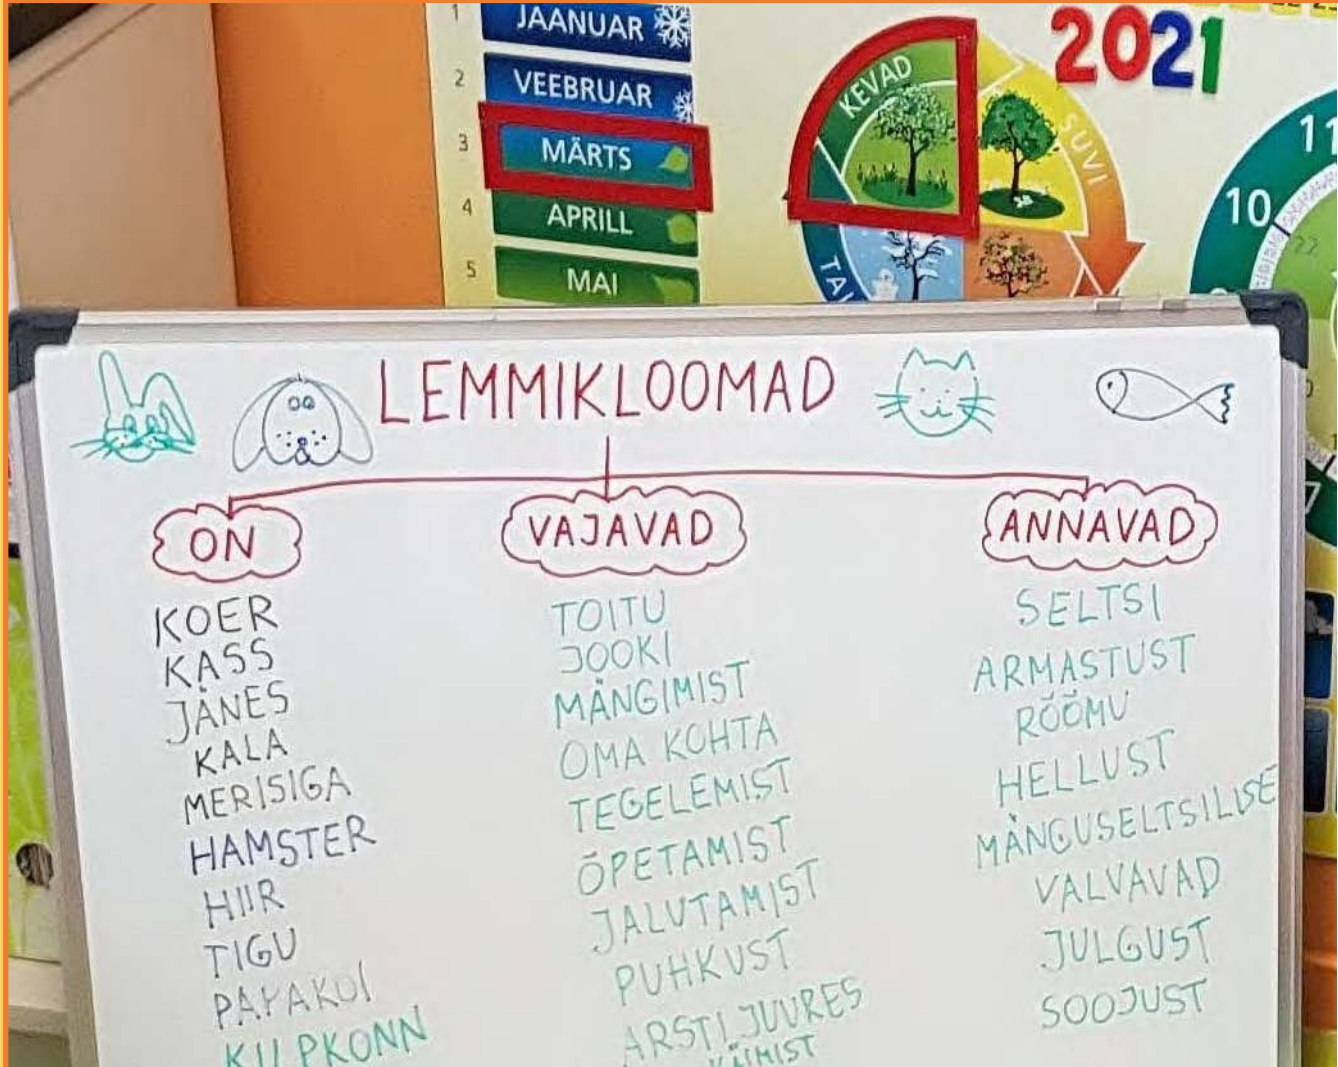 1 JAANUAR
2 VEEBRUAR
3 MÄRTS
4 APRILL
5 MAI
KEVAD
SUVI
2021
11
10
LEMMIKLOOMAD
ON
KOER
KASS
JÄNES
KALA
MERISIGA
HAMSTER
HIIR
TIGU
PAPAKOI
KILPKONN
VAJAVAD
TOITU
JOOKI
MÄNGIMIST
OMA KOHTA
TEGELEMIST
ÕPETAMIST
JALUTAMIST
PUHKUST
ARSTI JUURES
KÄIMIST
ANNAVAD
SELTSI
ARMASTUST
RÕÕMU
HELLUST
MÄNGUSELTSILISE
VALVAVAD
JULGUST
SOOJUST